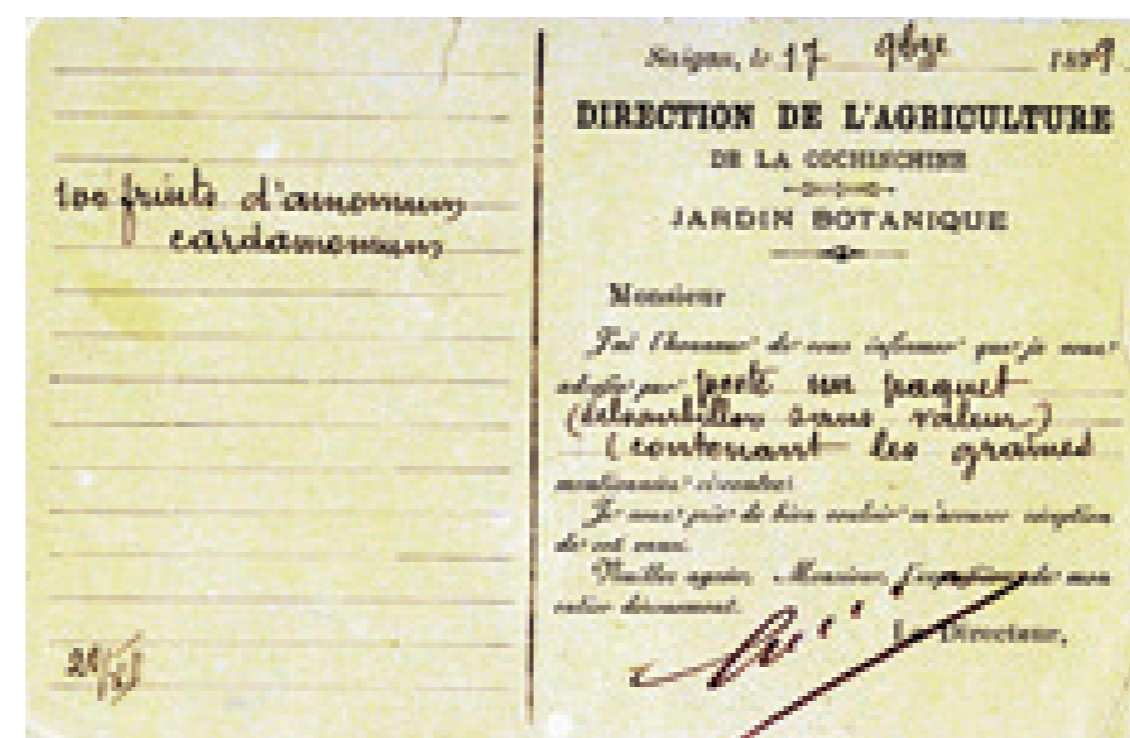 100 fruits d'amomum
cardamomum
Saigon, le 17 9bre 1899
DIRECTION DE L'AGRICULTURE
DE LA COCHINCHINE
JARDIN BOTANIQUE
Monsieur
J'ai l'honneur de vous informer que je vous
par poste un paquet
(échantillon sans valeur)
(contenant les graines
mentionnées ci-contre.
Je vous prie de bien vouloir m'accuser réception
de cet envoi.
Veuillez agréer, Monsieur, l'expression de mon
entier dévouement.
Le Directeur,